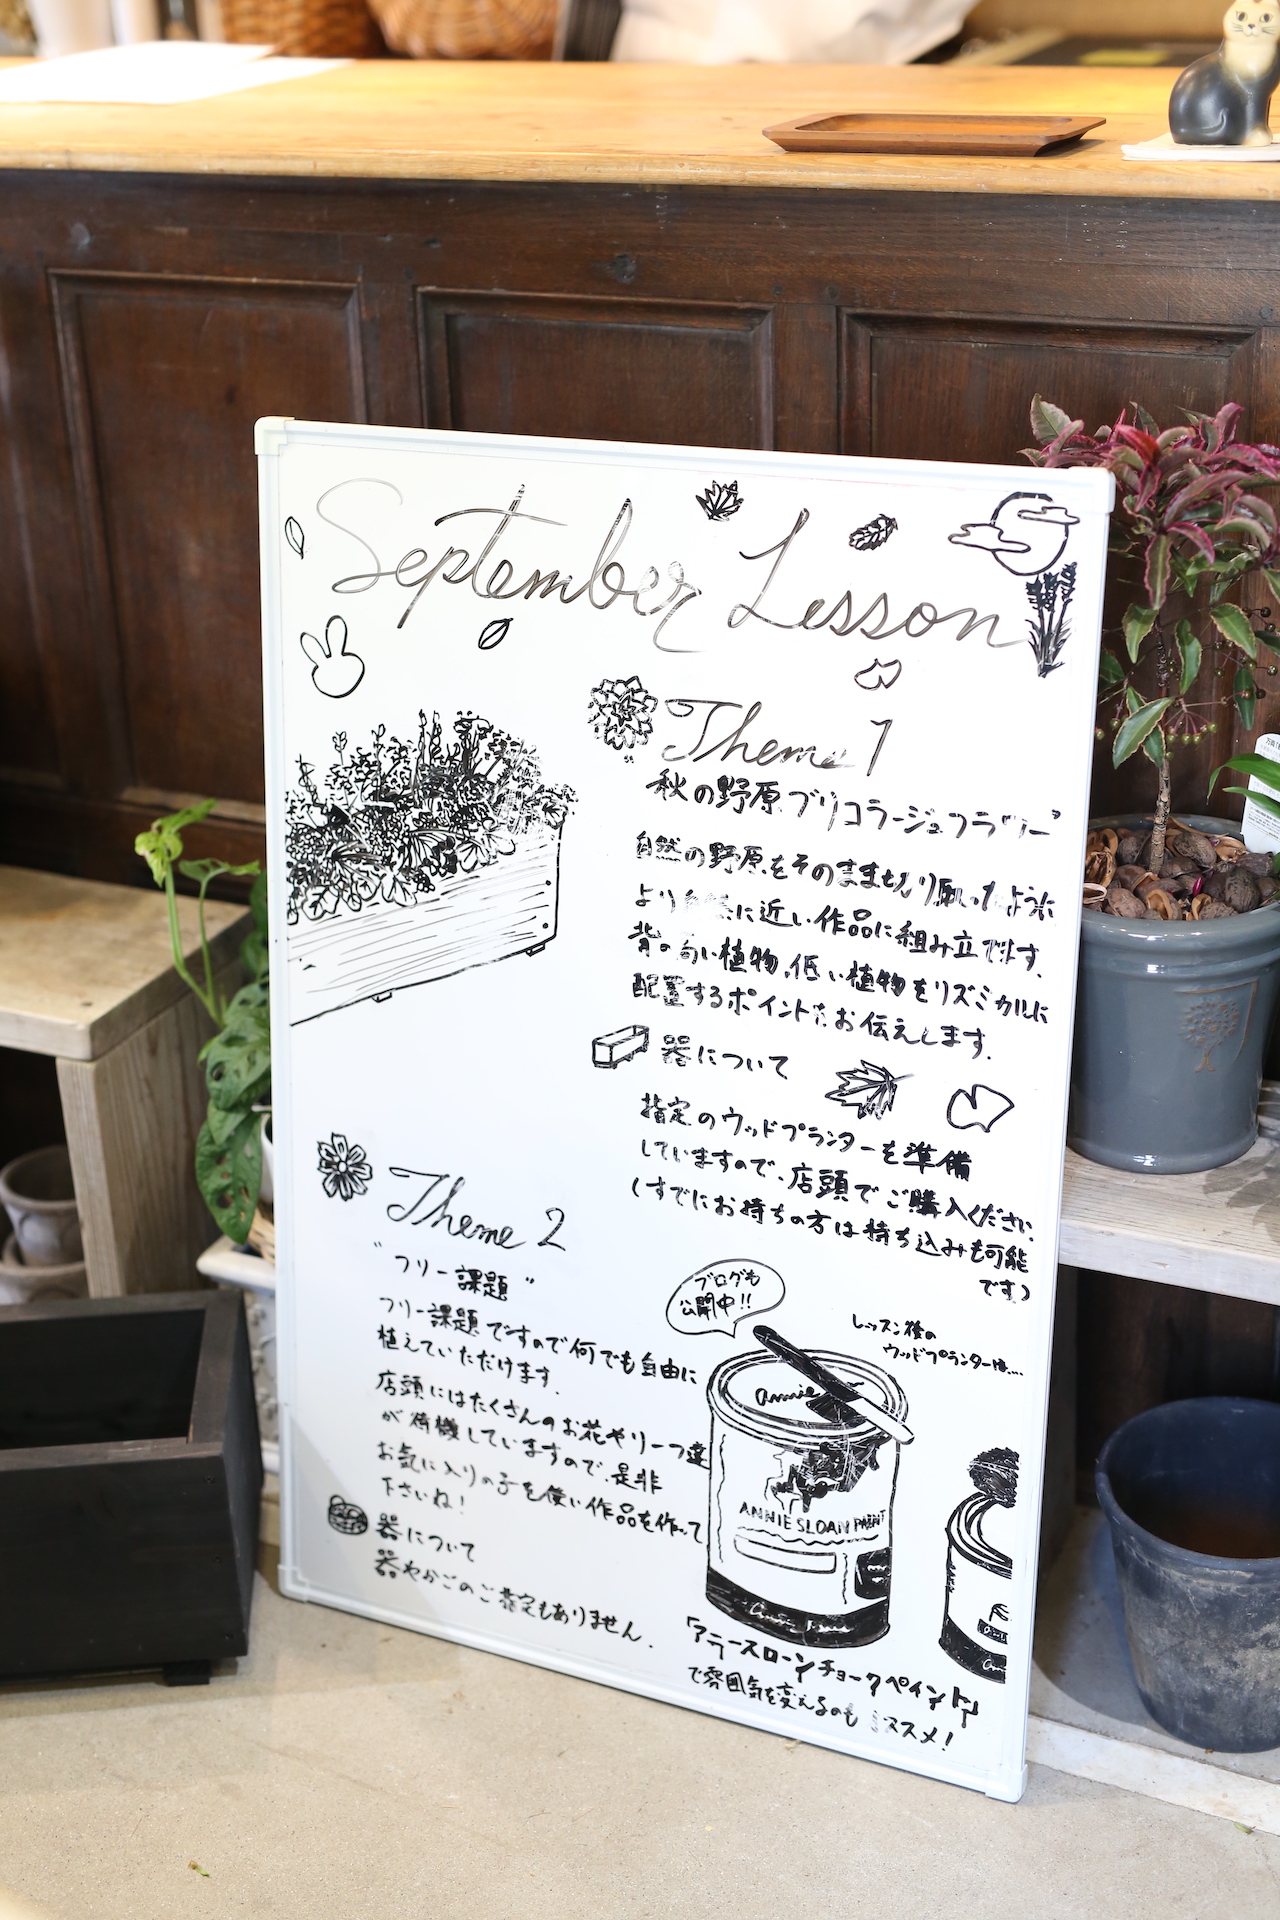 September Lesson
Theme 1
秋の野原ブリコラージュフラワー"
自然の野原をそのまま切り取ったように
より自然に近い作品に組み立てます。
背の高い植物、低い植物をリズミカルに
配置するポイントをお伝えします。
器について
指定のウッドプランターを準備
していますので、店頭でご購入ください。
(すでにお持ちの方は持ち込みも可能
です)
Theme 2
"フリー課題"
フリー課題ですので何でも自由に
植えていただけます。
店頭にはたくさんのお花やリーフ達
が待機していますので、是非
お気に入りの子を使い作品を作って
下さいね!
器について
器やかごのご指定もありません。
ブログも
公開中!!
レッスン後の
ウッドプランターは....
annie
ANNIE SLOAN PAINT
「アニースローンチョークペイント」
で雰囲気を変えるのもオススメ!